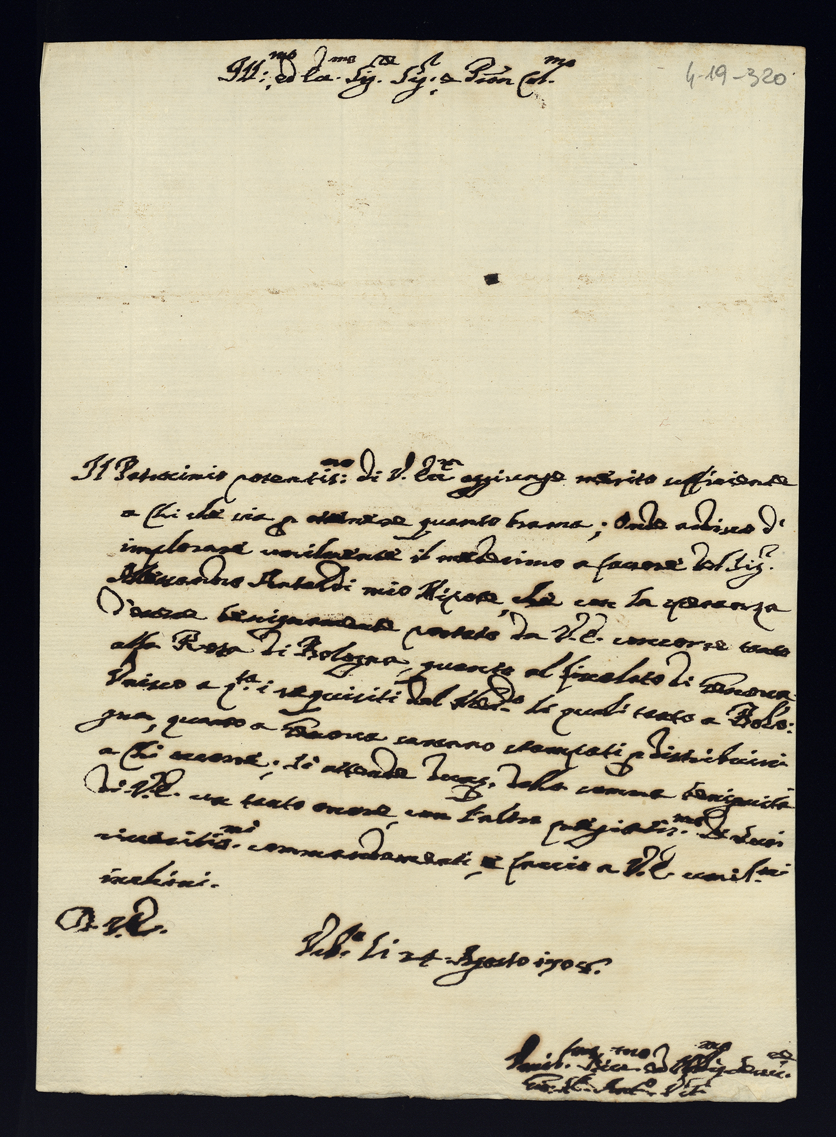 Ill:mo ed Ecc.mo Sig.re Sig.r e Pron Col.mo
4-19-320
Il Patrocinio potentis:mo di V. Ecc.za aggiunge merito sufficiente
a chi che sia p ottenere quanto brama; Onde ardisco d'
implorare umilmente il medesimo a favore del Sig.r
Alessandro Antaldi mio Nipote, che con la speranza
d'essere benignamente portato da V.E. concorre tanto
alla Rota di Bologna, quanto al di Genova.
Unisco a q.ta i requisiti dal Med.mo li quali tanto a Bolo:
gna, quanto a Genova saranno stampati, e distribuiti
a chi occorre; Si attende dunq. dalla somma benignità
di V.E. un tanto onore, con l'altro pregiatis.mo de suoi
riveritis.mi commandamenti, e faccio a V.E. umil.mi
inchini.
Di V.E.
Urb.o li 24 Agosto 1708.
Umil. ed Obblig. Serv.